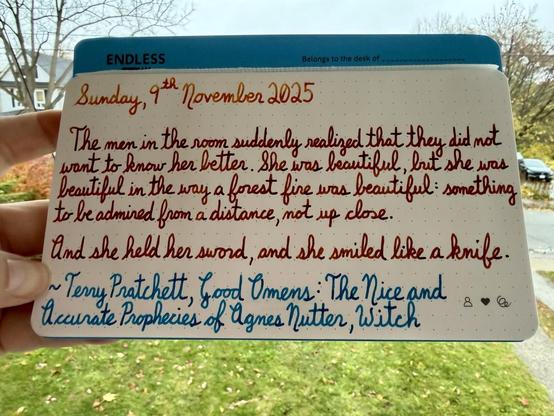 ENDLESS
Belongs to the desk of
Sunday, 9th November 2025
The men in the room suddenly realized that they did not
want to know her better. She was beautiful, but she was
beautiful in the way a forest fire was beautiful: something
to be admired from a distance, not up close.
And she held her sword, and she smiled like a knife.
~ Terry Pratchett, Good Omens: The Nice and
Accurate Prophecies of Agnes Nutter, Witch